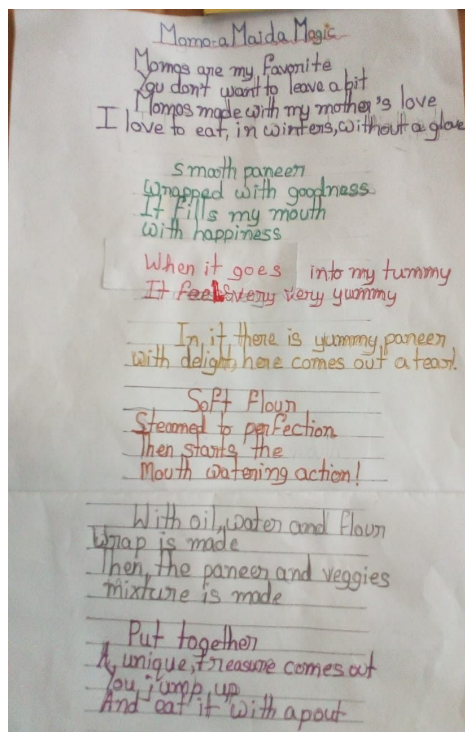 Momo:a Maida Magic
Momos are my favorite
You don't want to leave a bit
Momos made with my mother's love
I love to eat, in winters, without a glove
smooth paneer
Wrapped with goodness
It fills my mouth
with happiness
When it goes into my tummy
It feels very very yummy
In it there is yummy paneer
with delight, here comes out a tear!
Soft Flour
Steamed to perfection
Then starts the
Mouth watering action!
With oil, water and flour
Wrap is made
Then, the paneer and veggies
mixture is made
Put together
A unique, treasure comes out
You jump up
And eat it with a pout